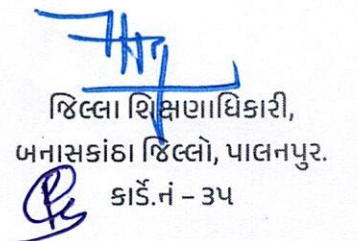 જિલ્લા શિક્ષણાધિકારી,
બનાસકાંઠા જિલ્લો, પાલનપુર.
કાર્ડ.નં – ૩૫